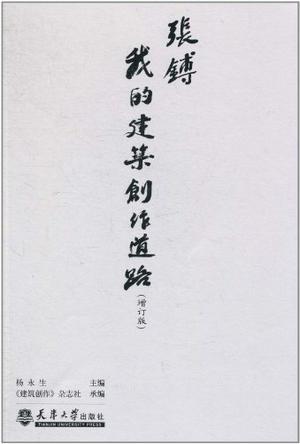 張鎛
我的建築創作道路
(增订版)
杨永生 主编
《建筑创作》杂志社 承编
天津大学出版社
TIANJIN UNIVERSITY PRESS